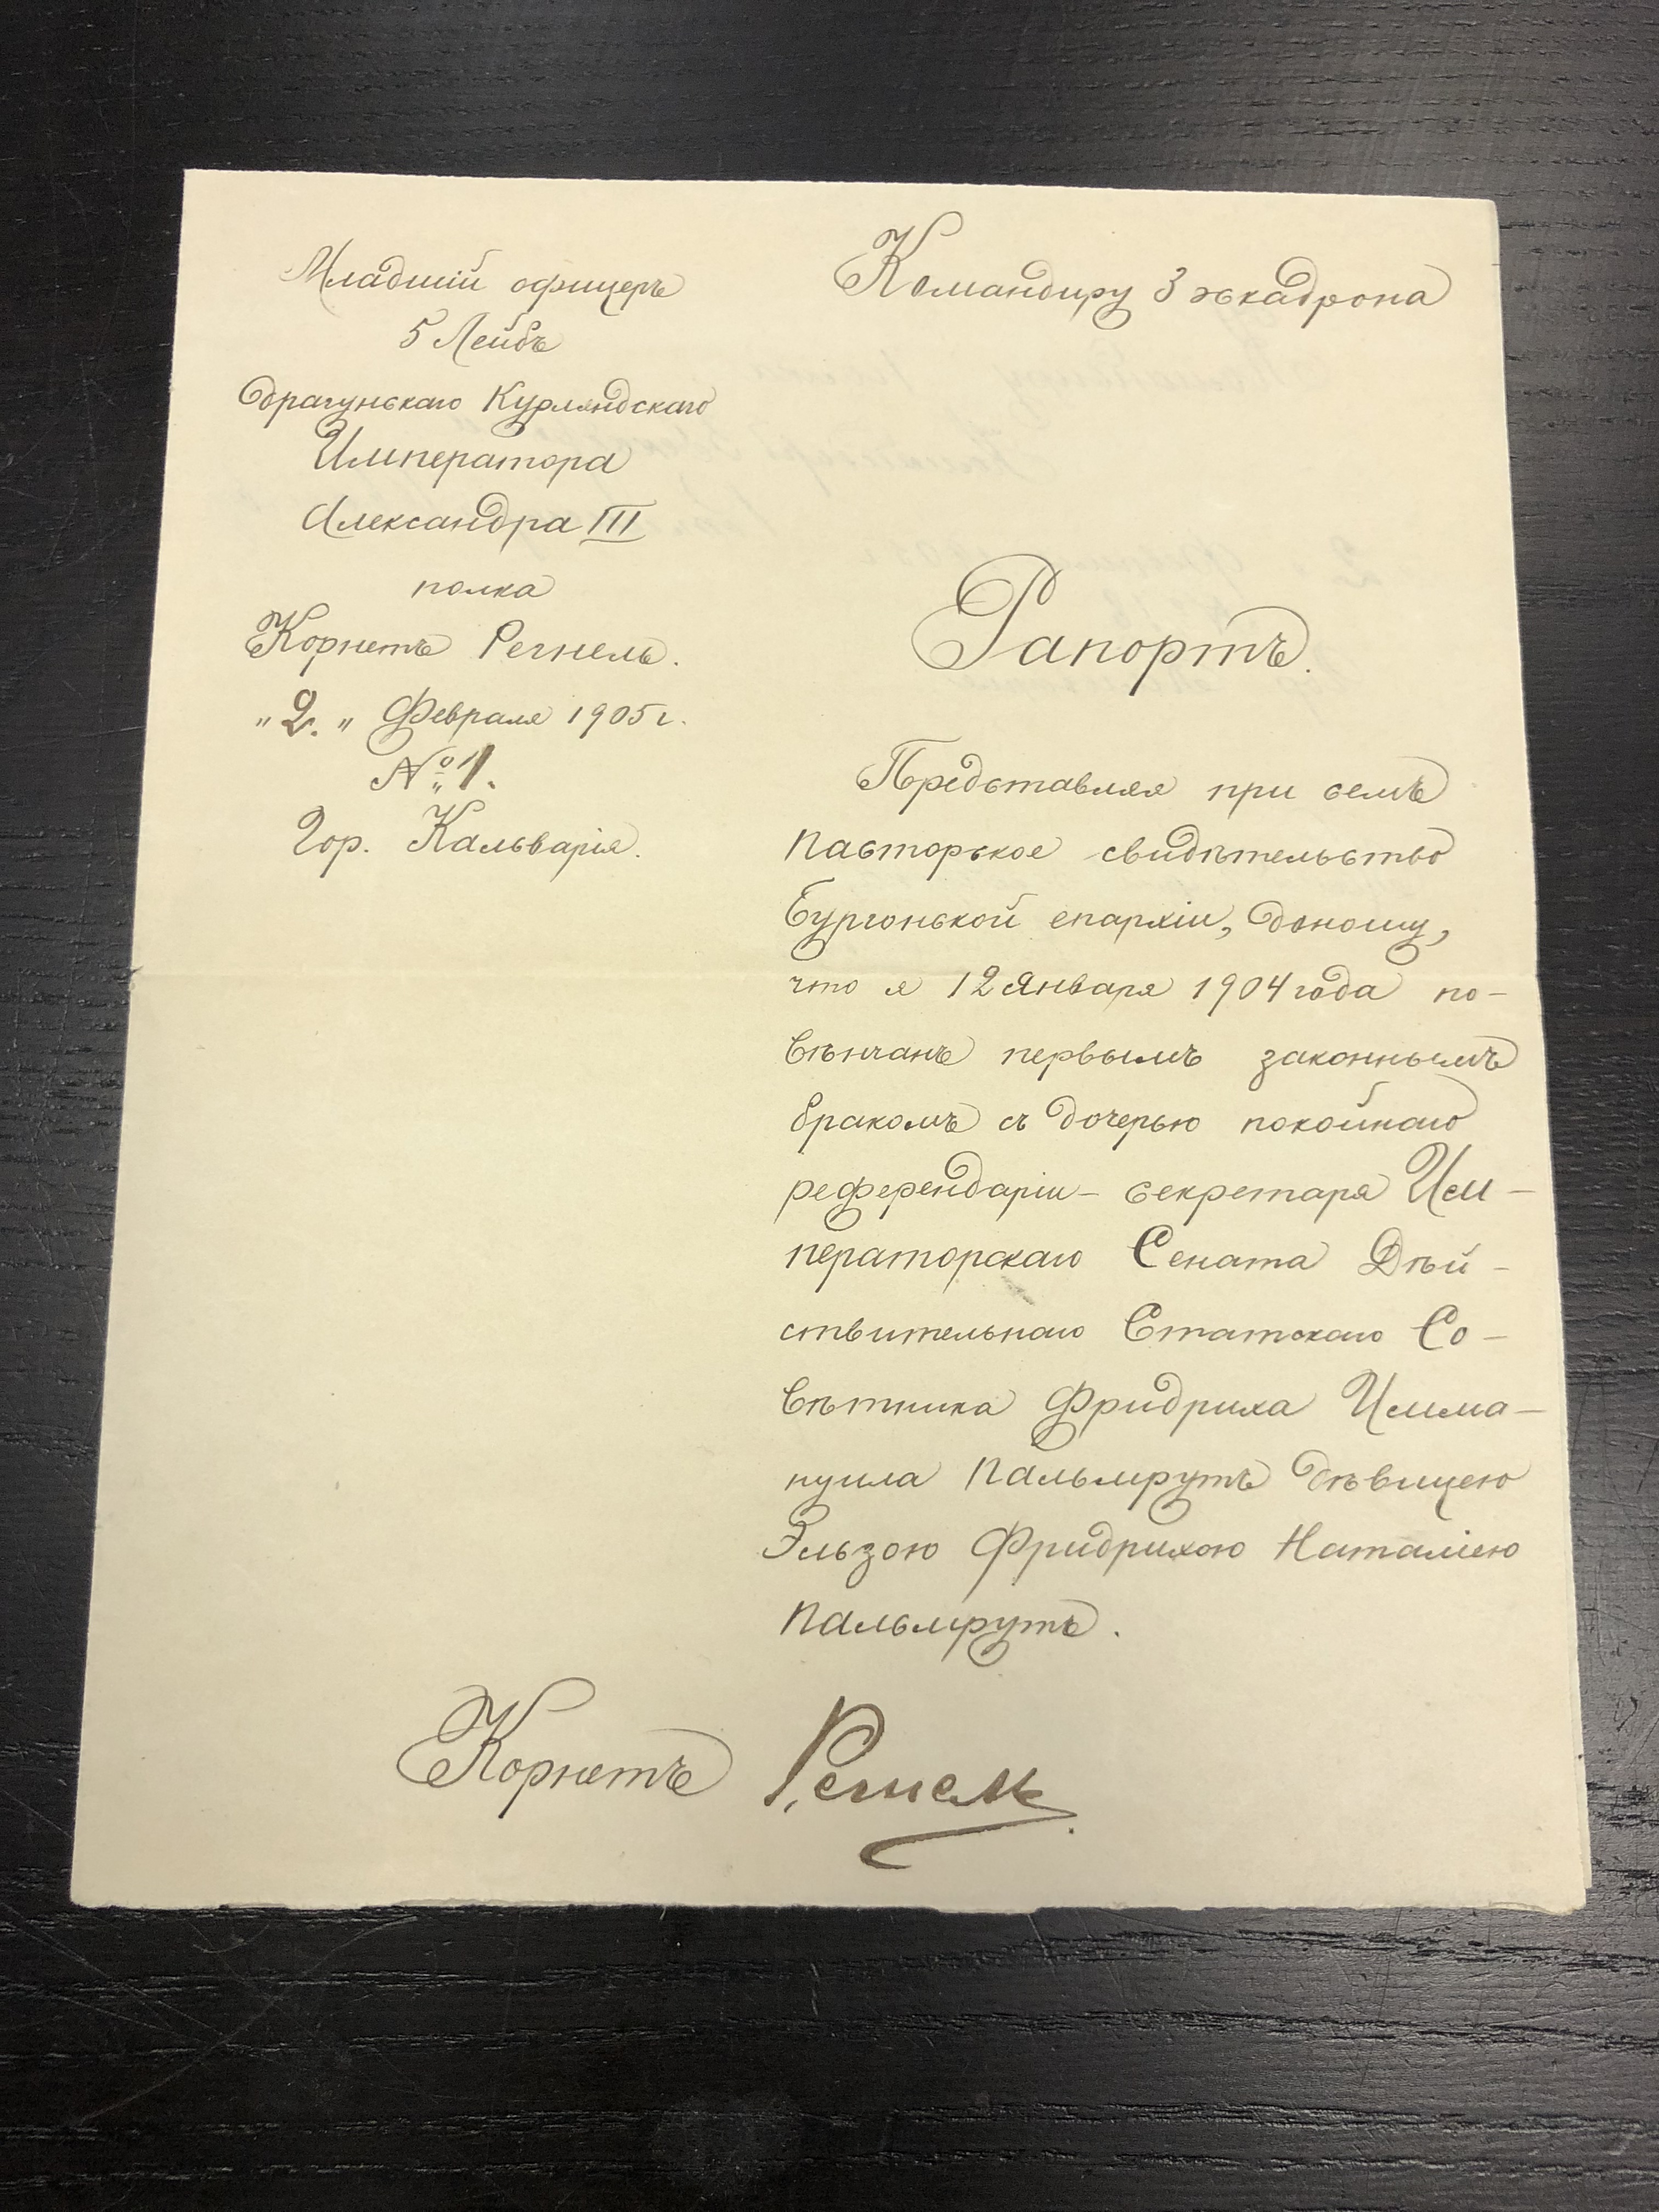 Младшій офицеръ
5 Лейбъ
драгунскаго Курляндскаго
Императора
Александра III
полка
Корнетъ Регнель.
„2.„ Февраля 1905 г.
№ 1.
Гор. Кальварія.
Командиру 3 эскадрона
Рапортъ.
Представляя при семъ
пасторское свидѣтельство
Бургонской епархіи, доношу,
что я 12 Января 1904 года по-
вѣнчанъ первымъ законнымъ
бракомъ съ дочерью покойнаго
референдаріи - секретаря Им-
ператорскаго Сената Дѣй-
ствительнаго Статскаго Со-
вѣтника Фридриха Имма-
нуила Пальмрутъ дѣвицею
Эльзою Фридрихою Наталіею
Пальмрутъ.
Корнетъ Регнель.